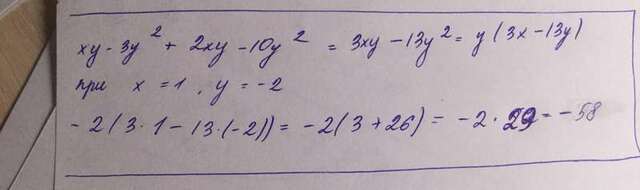 xy - 3y² + 2xy - 10y² = 3xy - 13y² = y(3x - 13y)
при x = 1, y = -2
-2(3·1 - 13·(-2)) = -2(3 + 26) = -2·29 = -58